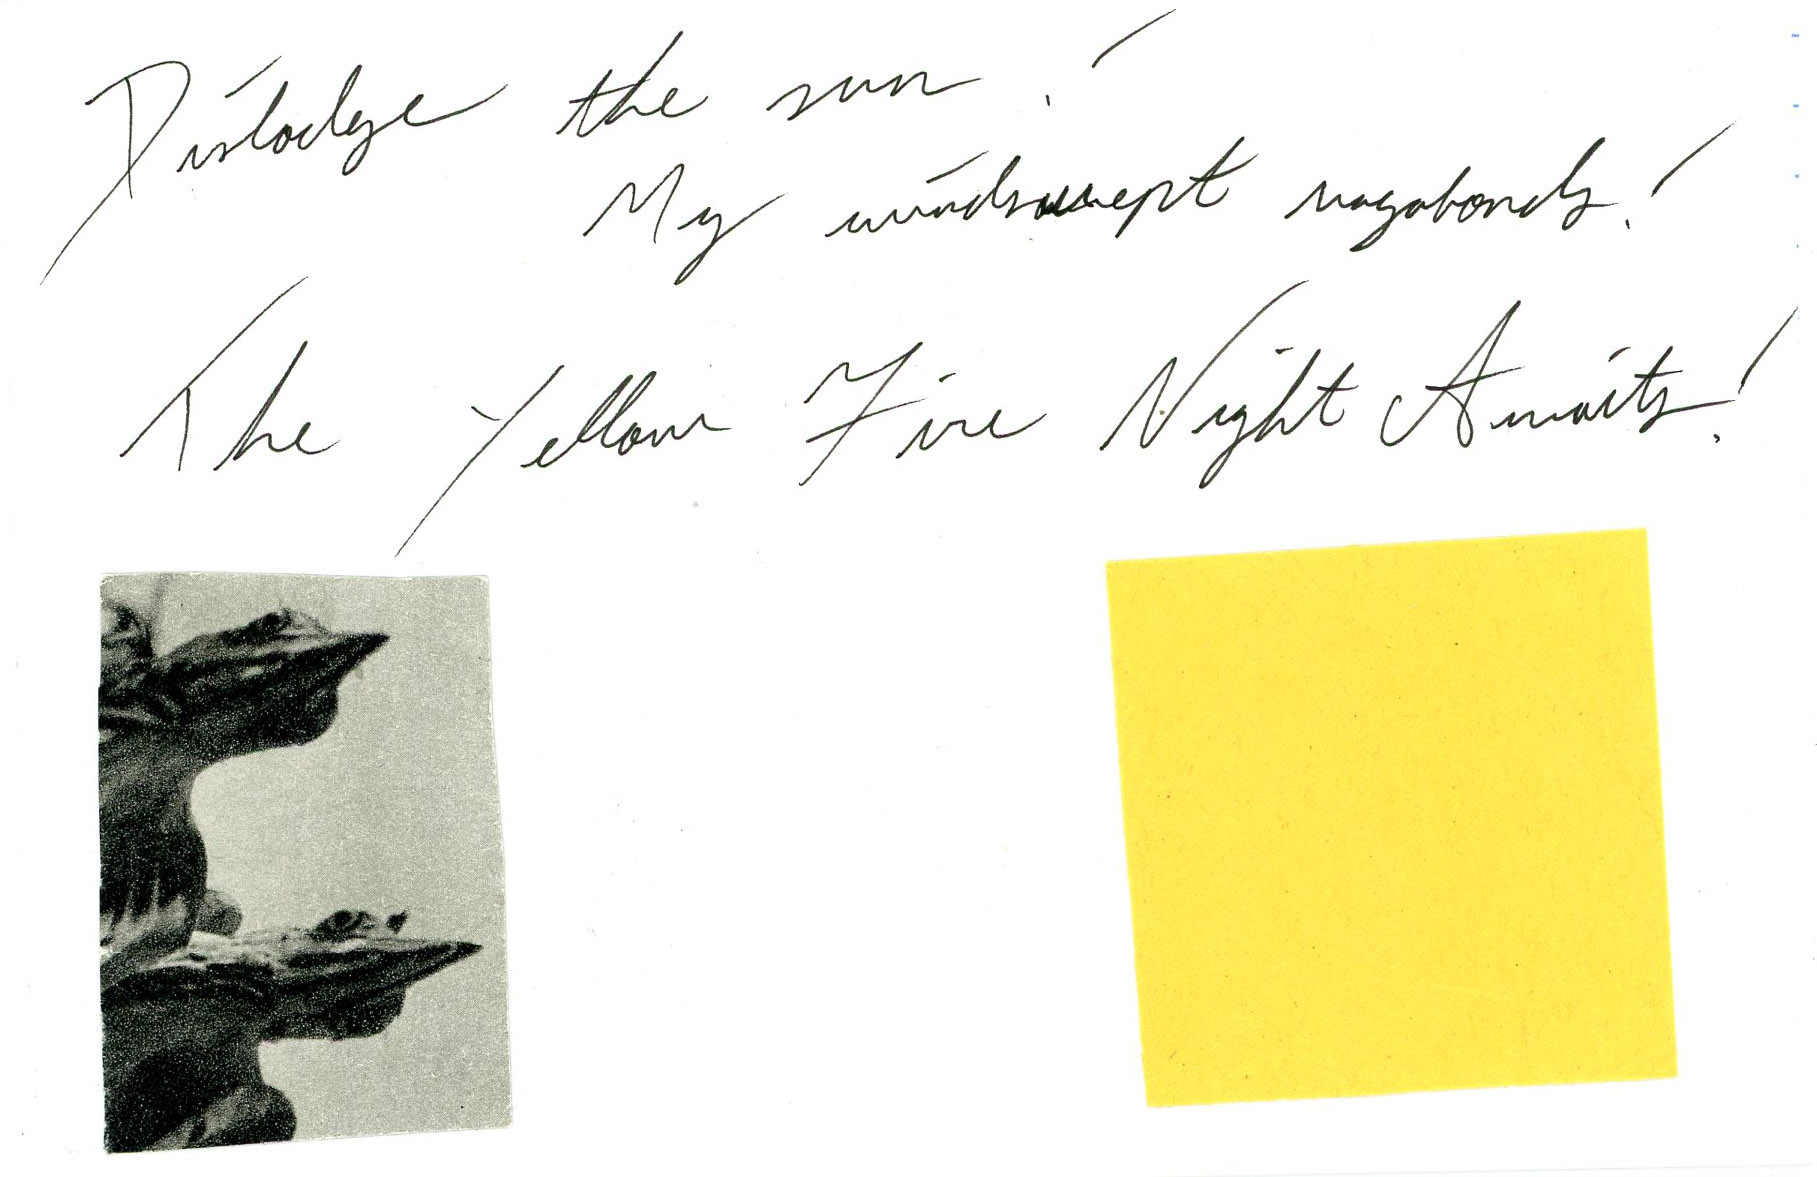 Dislodge the sun!
My windswept vagabonds!
The Yellow Fire Night Awaits!